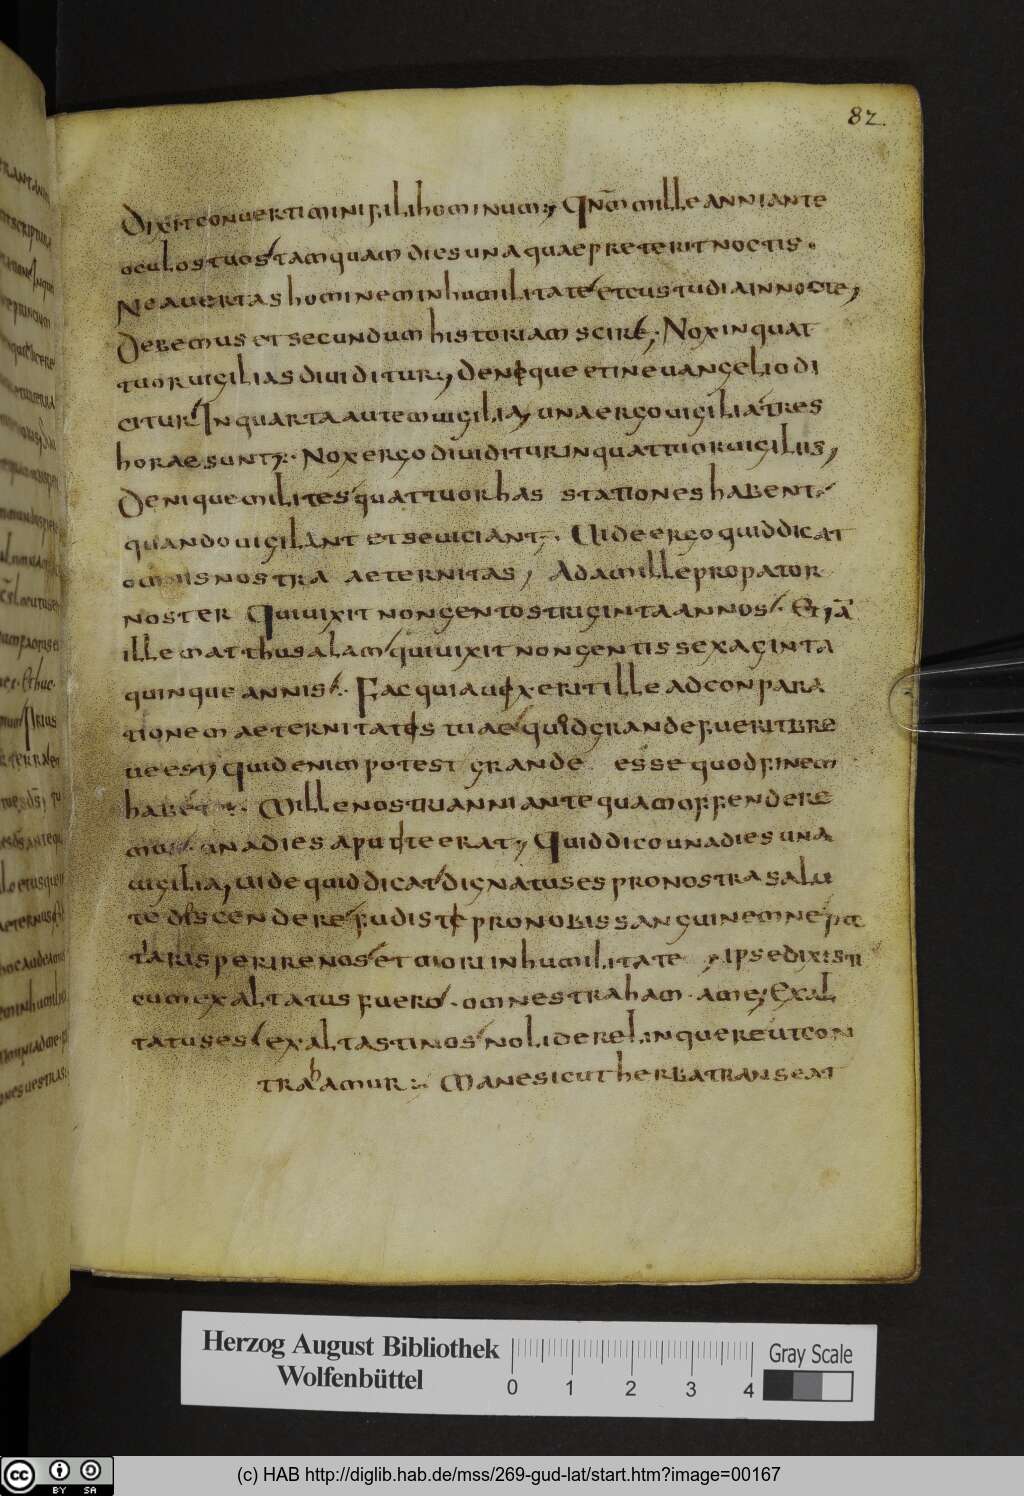 82.
Dixit conuertimini filihominum; Qnm mille anni ante
oculos tuos tamquam dies una quae preterit noctis.
Ne auertas hominem in humilitate et custudia in nocte,
Debemus et secundum historiam scire; Nox in quat
tuor uigilias diuiditur, Denique et in euangelio di
citur In quarta autem uigilia, una ergo uigilia tres
horae sunt; Nox ergo diuiditur in quattuor uigilis,
Denique milites quattuor has stationes habent
quando uigilant et se uiciant; Uide ergo quid dicat
nostra aeternitas, Adam ille propator
noster Qui uixit nongentos triginta annos. Etiā
ille matthusalam qui uixit nongentis sexaginta
quinque annis. Fac quia uixerit ille ad conpara
tionem aeternitatis tuae quid grande fuerit bre
ue est; quid enim potest grande esse quod finem
habet. Mille nostri anni antequam offendere
mus una dies aput te erat; Quid dico una dies una
uigilia, uide quid dicat dignatus es pro nostra salu
te discendere fudisti pro nobis sanguinem ne pa
taris perire nos et mori in humilitate, ipse dixisti
cum exaltatus fuero. omnes traham. a me; Exal
tatus es exaltasti nos noli derelinquere ut con
trahamur; Mane sicut herba transeat
Herzog August Bibliothek
Wolfenbüttel
0 1 2 3 4
Gray Scale
cc BY SA
(c) HAB http://diglib.hab.de/mss/269-gud-lat/start.htm?image=00167